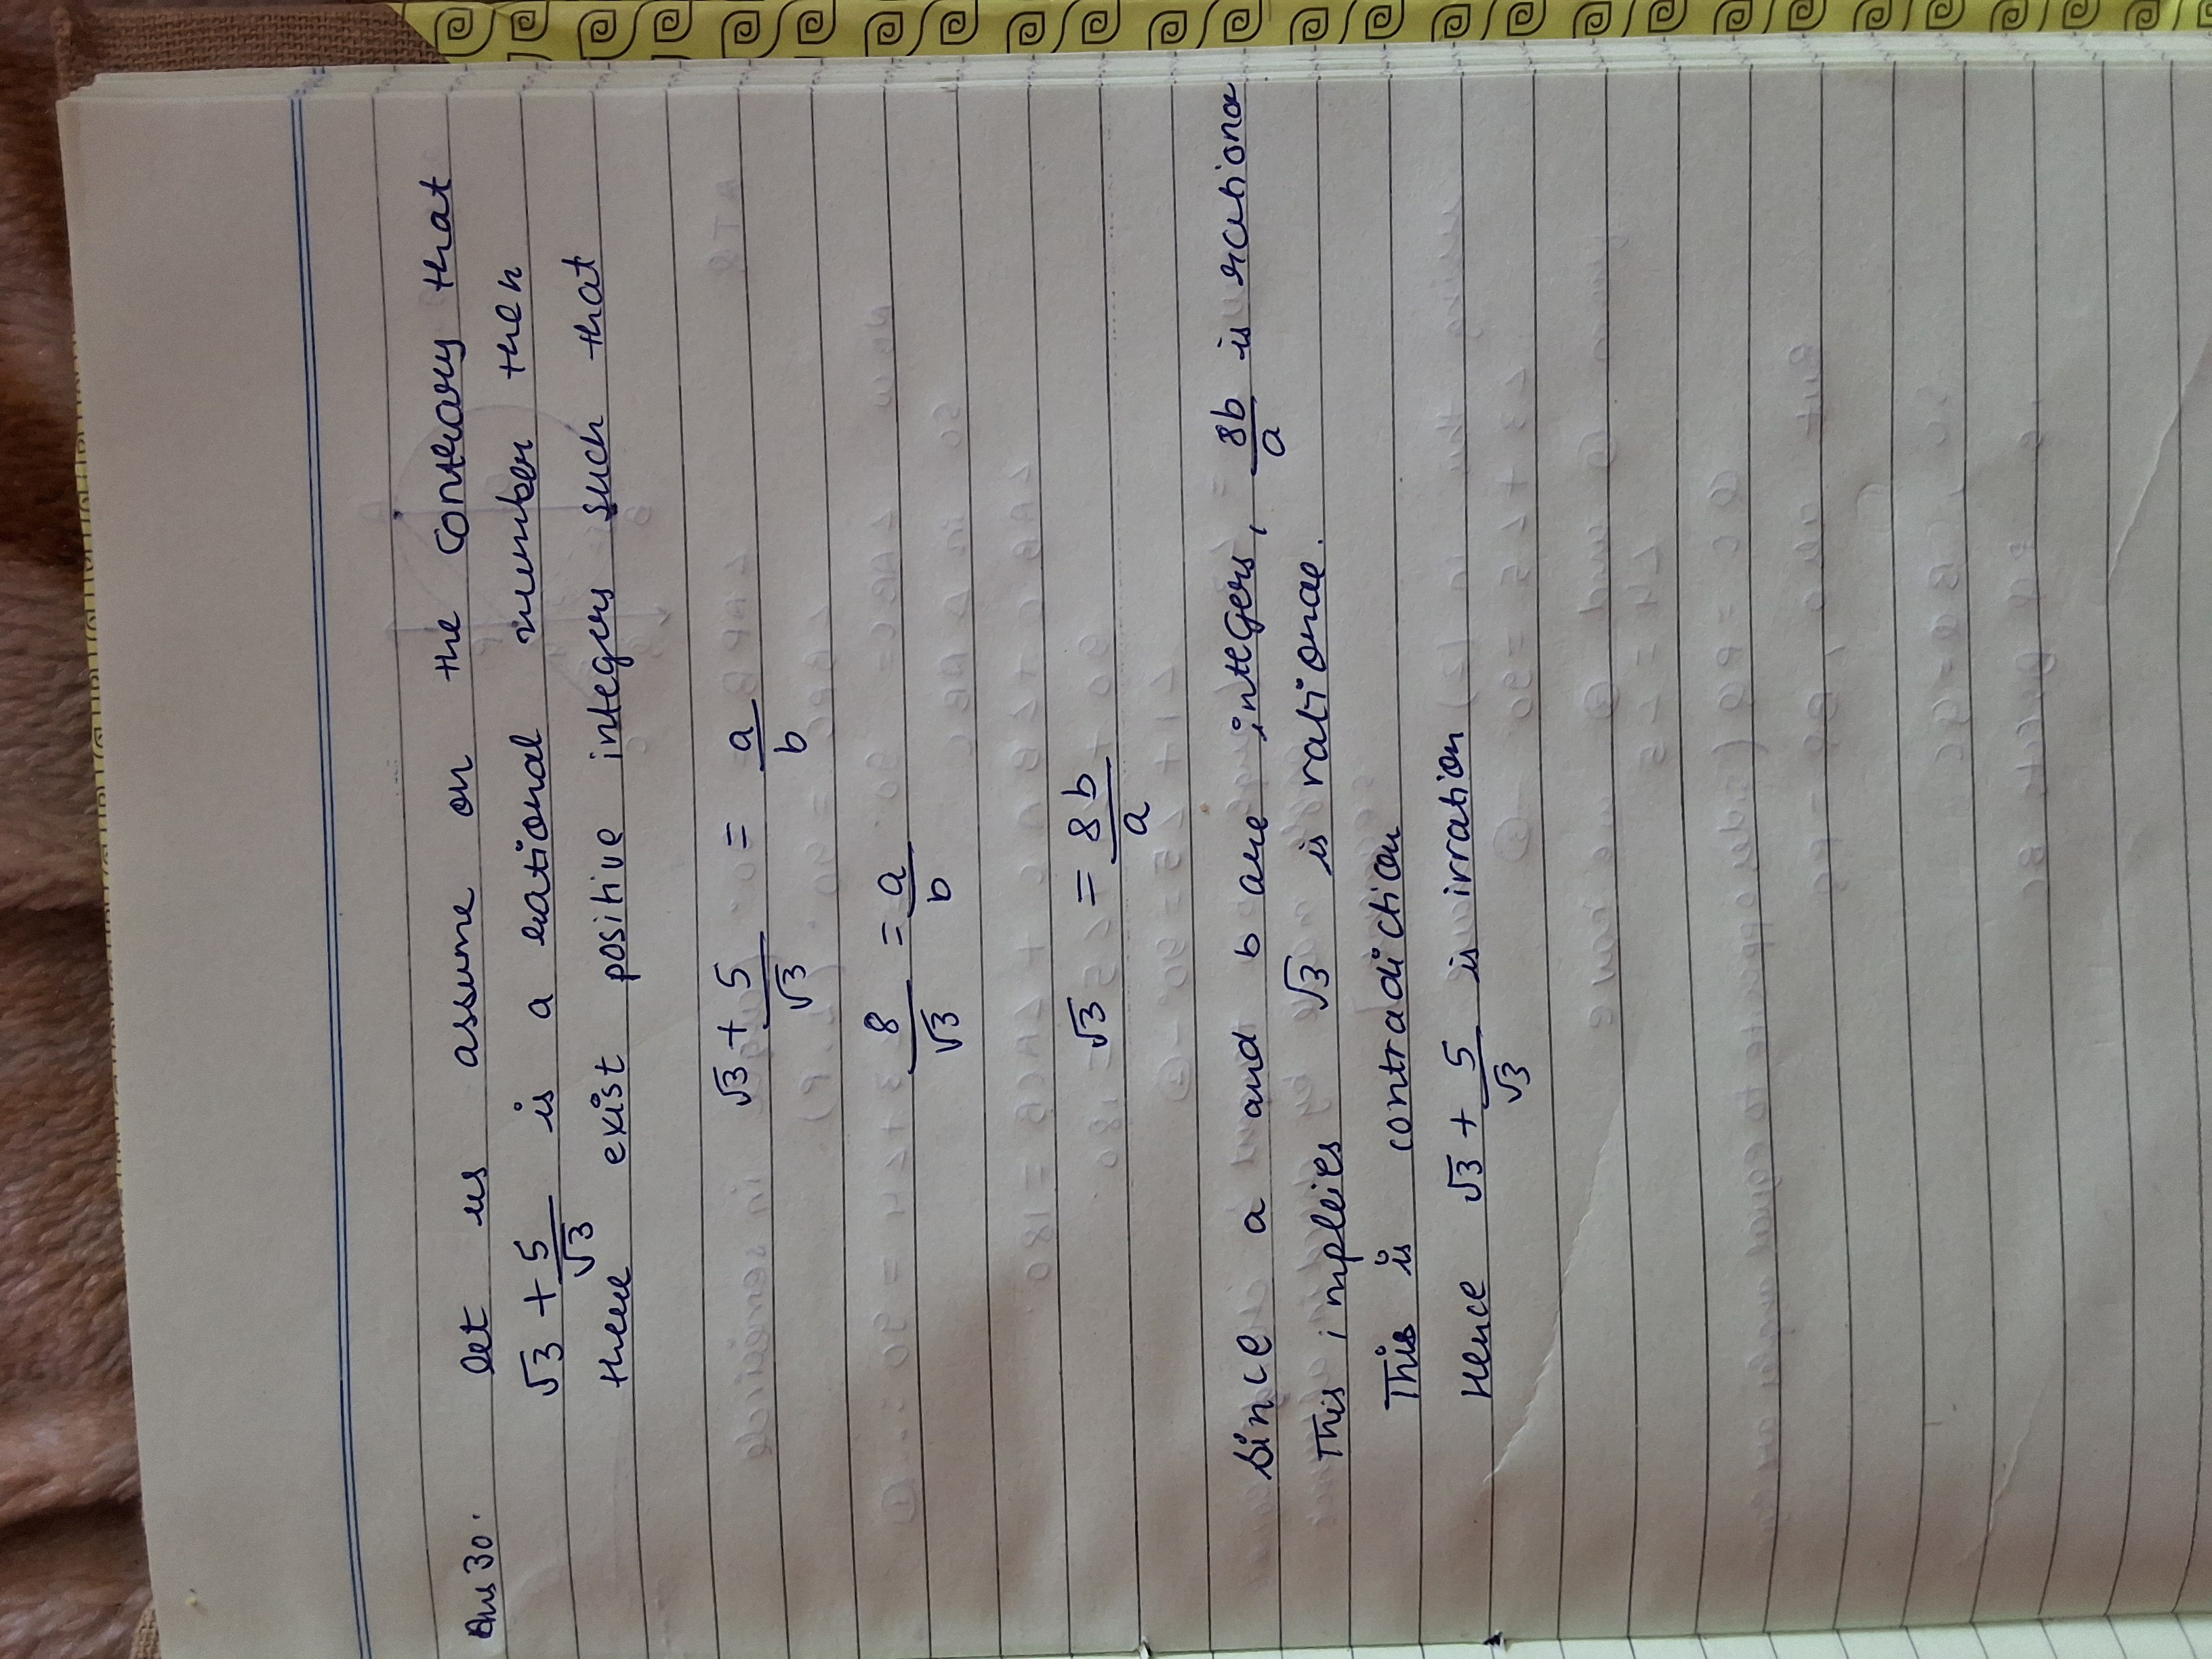 Ans 30. let us assume on the contrary that
√3 + 5/√3 is a rational number then
there exist positive integers such that
√3 + 5/√3 = a/b
8/√3 = a/b
√3 = 8b/a
Since a and b are integers, 8b/a is rationa
This, implies √3 is rational.
This is contradiction
Hence √3 + 5/√3 is irration